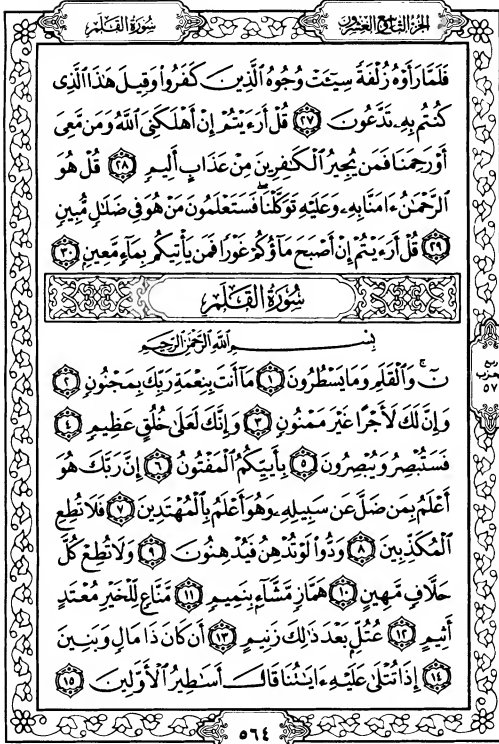 الجزء التاسع والعشرون
سورة القلم
فَلَمَّا رَأَوْهُ زُلْفَةً سِيٓـَٔتْ وُجُوهُ ٱلَّذِينَ كَفَرُوا۟ وَقِيلَ هَـٰذَا ٱلَّذِى
كُنتُم بِهِۦ تَدَّعُونَ ٢٧ قُلْ أَرَءَيْتُمْ إِنْ أَهْلَكَنِىَ ٱللَّهُ وَمَن مَّعِىَ
أَوْ رَحِمَنَا فَمَن يُجِيرُ ٱلْكَـٰفِرِينَ مِنْ عَذَابٍ أَلِيمٍ ٢٨ قُلْ هُوَ
ٱلرَّحْمَـٰنُ ءَامَنَّا بِهِۦ وَعَلَيْهِ تَوَكَّلْنَا ۖ فَسَتَعْلَمُونَ مَنْ هُوَ فِى ضَلَـٰلٍ مُّبِينٍ
٢٩ قُلْ أَرَءَيْتُمْ إِنْ أَصْبَحَ مَآؤُكُمْ غَوْرًا فَمَن يَأْتِيكُم بِمَآءٍ مَّعِينٍۭ ٣٠
سُورَةُ القَلَمِ
بِسْمِ ٱللَّهِ ٱلرَّحْمَـٰنِ ٱلرَّحِيمِ
نٓ ۚ وَٱلْقَلَمِ وَمَا يَسْطُرُونَ ١ مَآ أَنتَ بِنِعْمَةِ رَبِّكَ بِمَجْنُونٍ ٢
وَإِنَّ لَكَ لَأَجْرًا غَيْرَ مَمْنُونٍ ٣ وَإِنَّكَ لَعَلَىٰ خُلُقٍ عَظِيمٍ ٤
فَسَتُبْصِرُ وَيُبْصِرُونَ ٥ بِأَييِّكُمُ ٱلْمَفْتُونُ ٦ إِنَّ رَبَّكَ هُوَ
أَعْلَمُ بِمَن ضَلَّ عَن سَبِيلِهِۦ وَهُوَ أَعْلَمُ بِٱلْمُهْتَدِينَ ٧ فَلَا تُطِعِ
ٱلْمُكَذِّبِينَ ٨ وَدُّوا۟ لَوْ تُدْهِنُ فَيُدْهِنُونَ ٩ وَلَا تُطِعْ كُلَّ
حَلَّافٍ مَّهِينٍ ١٠ هَمَّازٍ مَّشَّآءٍۭ بِنَمِيمٍ ١١ مَّنَّاعٍ لِّلْخَيْرِ مُعْتَدٍ
أَثِيمٍ ١٢ عُتُلٍّۭ بَعْدَ ذَٰلِكَ زَنِيمٍ ١٣ أَن كَانَ ذَا مَالٍ وَبَنِينَ
١٤ إِذَا تُتْلَىٰ عَلَيْهِ ءَايَـٰتُنَا قَالَ أَسَـٰطِيرُ ٱلْأَوَّلِينَ ١٥
ربع
الحزب
٥٧
٥٦٤